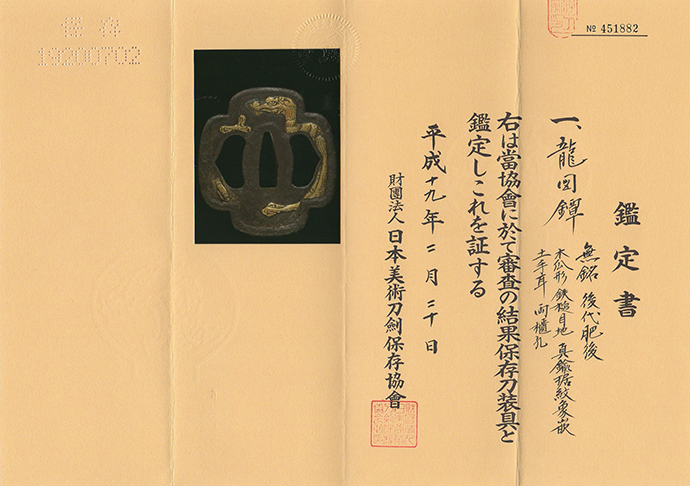 № 451882
鑑定書
一、龍図鐔
無銘 後代肥後
木瓜形 鉄槌目地 真鍮据紋象嵌
土手耳 両櫃孔
右は當協會に於て審査の結果保存刀装具と
鑑定しこれを証する
平成十九年二月二十日
財團法人日本美術刀劍保存協會
保存
19200702